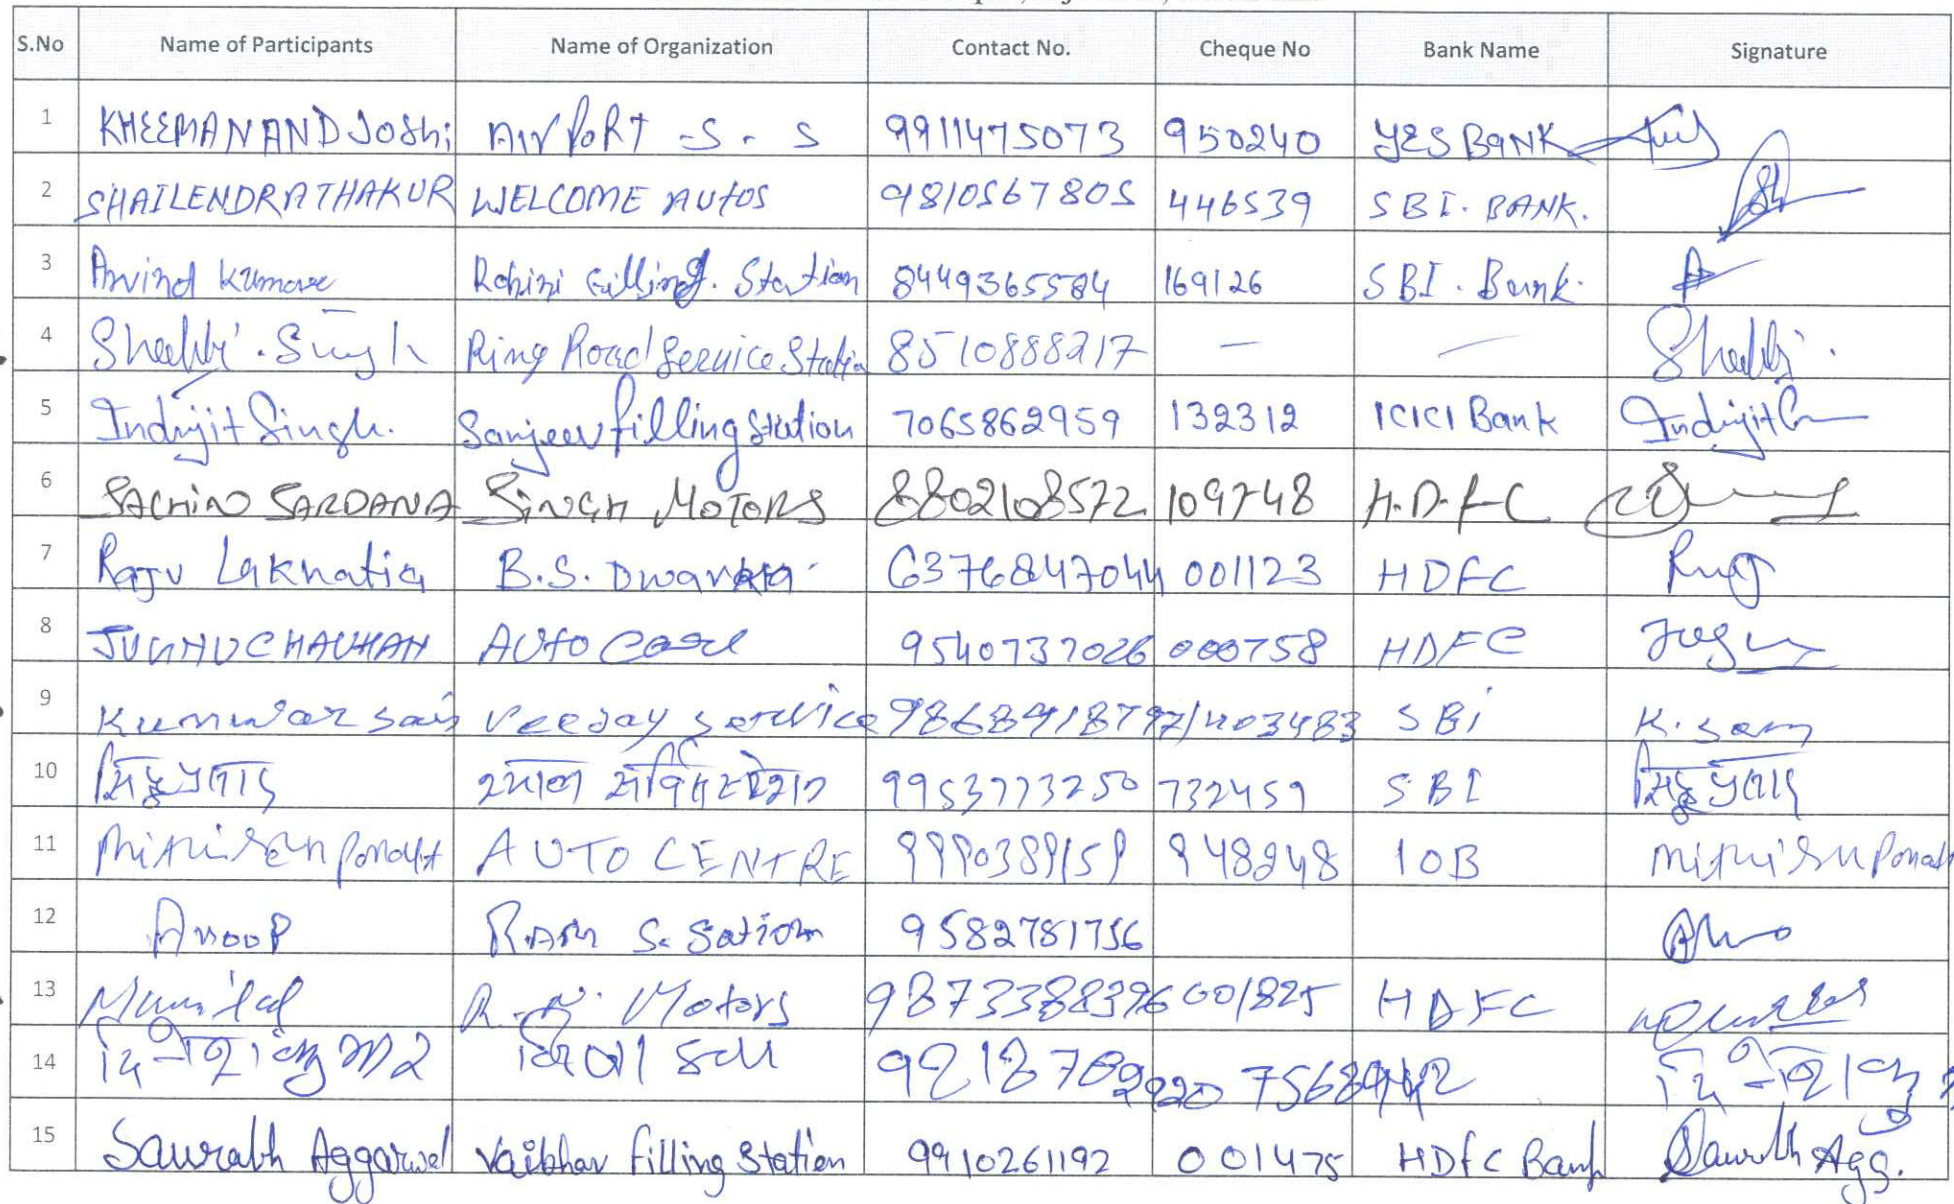 S.No Name of Participants Name of Organization Contact No. Cheque No Bank Name Signature
1 KHEEMANAND Joshi AIRPORT -S. S 9911475073 950240 YES BANK
2 SHAILENDRA THAKUR WELCOME AUtOS 9810567805 446539 SBI. BANK.
3 Arvind Kumare Rohini Filling. Station 8449365584 169126 SBI. Bank.
4 Shelly. Singh Ring Road Service Statio 8510888217 — —
5 Indrjit Singh. Sanjeev filling Station 7065862959 132312 ICICI Bank Indrjit
6 SACHIN SARDANA SINGH MOTORS 8802108572 109748 H.D.F.C
7 Raju Lakhatia B.S. Dwarka 6376847044 001123 HDFC
8 JUGNU CHAUHAN AUTO Care 9540737026 000758 HDFC
9 Kunwar sain Veejay service 9868918797/403483 SBi K. sain
10 9953773250 732459 SBI
11 AUTO CENTRE 9990389159 948248 IOB
12 Anoop RAM S. Sation 9582781756
13 Munilal R.N. Motors 9873388396 001825 HDFC
14
15 Saurabh Aggarwal Vaibhav filling Station 9910261192 001475 HDFC Bank Saurabh Agg.